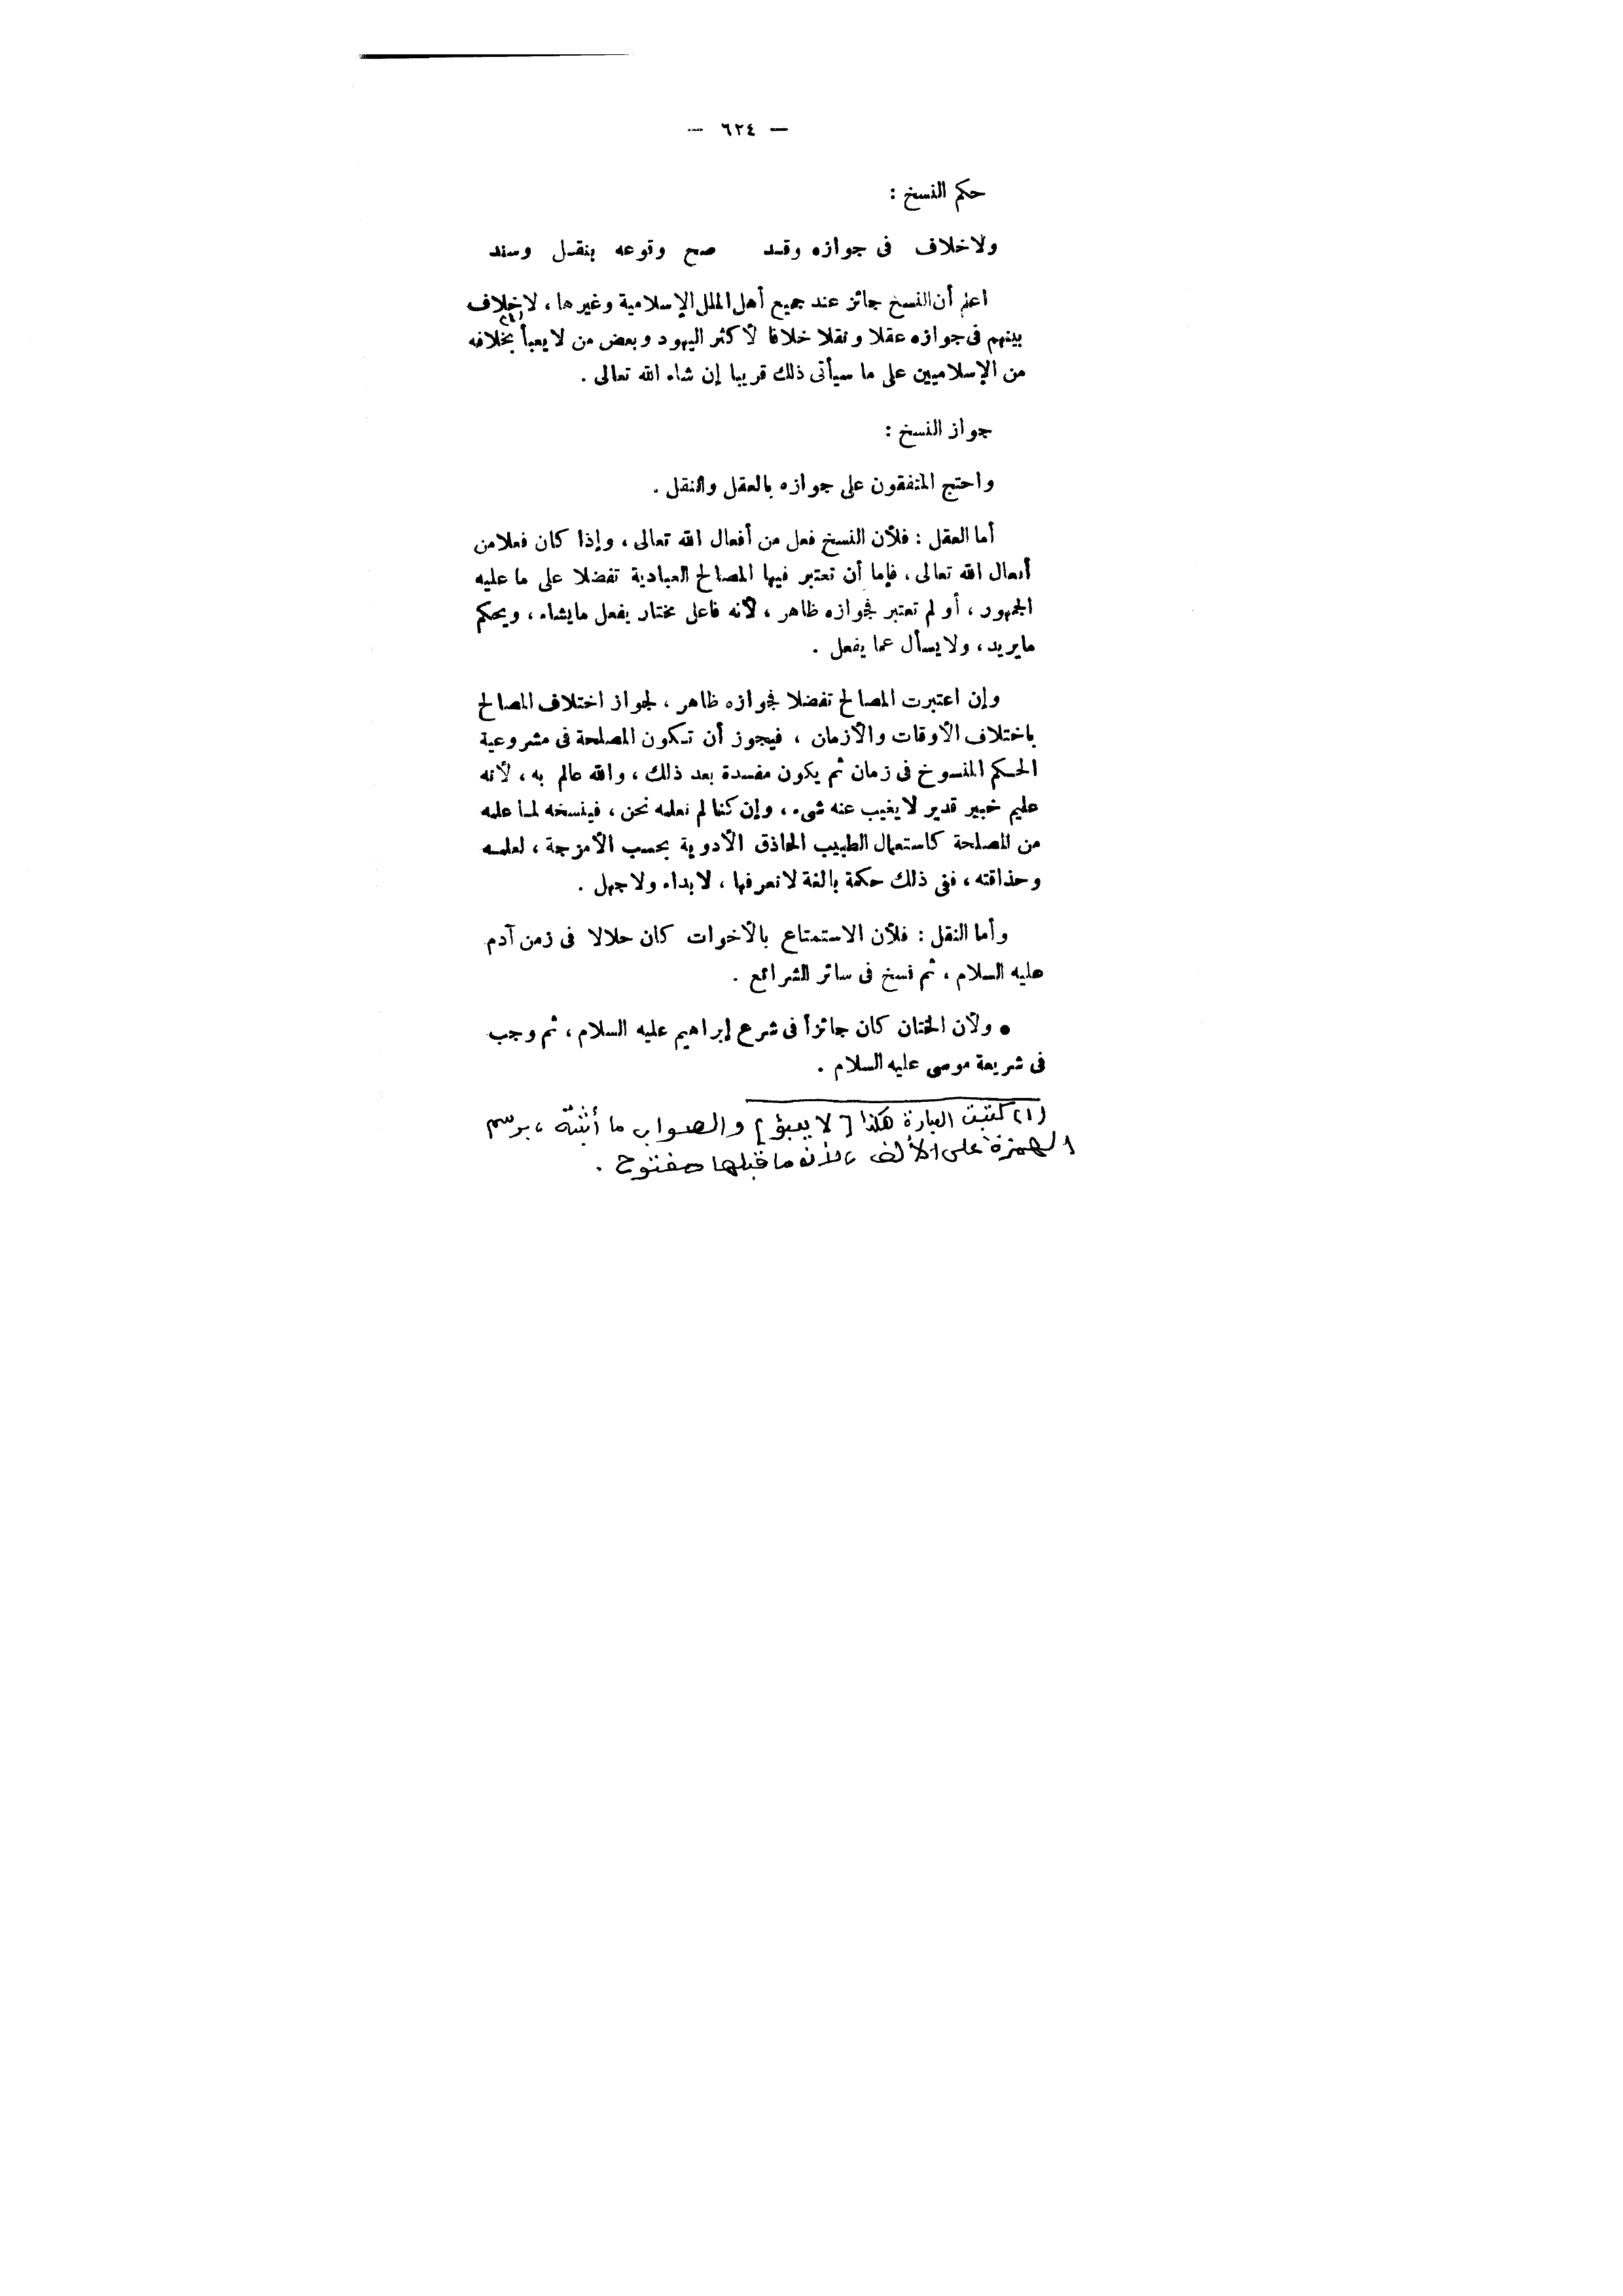 — ٦٢٤ —
حكم النسخ :
ولاخلاف فى جوازه وقـد صح وقوعه بنقـل وسند
اعلم أن النسخ جائز عند جميع أهل الملل الإسلامية وغيرها ، لاخلاف
بينهم فى جوازه عقلا ونقلا خلافا لأكثر اليهود وبعض من لايعبأ (١) بخلافه
من الإسلاميين على ما سيأتى ذلك قريبا إن شاء الله تعالى .
جواز النسخ :
واحتج المتفقون على جوازه بالعقل والنقل .
أما العقل : فلأن النسخ فعل من أفعال الله تعالى ، وإذا كان فعلا من
أفعال الله تعالى ، فإما أن تعتبر فيها المصالح العبادية تفضلا على ما عليه
الجمهور ، أو لم تعتبر فجوازه ظاهر ، لأنه فاعل مختار يفعل مايشاء ، ويحكم
مايريد ، ولايسأل عما يفعل .
وإن اعتبرت المصالح تفضلا فجوازه ظاهر ، لجواز اختلاف المصالح
باختلاف الأوقات والأزمان ، فيجوز أن تكون المصلحة فى مشروعية
الحكم المنسوخ فى زمان ثم يكون مفسدة بعد ذلك ، والله عالم به ، لأنه
عليم خبير قدير لايغيب عنه شىء ، وإن كنا لم نعلمه نحن ، فينسخه لما علمه
من المصلحة كاستعمال الطبيب الحاذق الأدوية بحسب الأمزجة ، لعلمـه
وحذاقته ، ففى ذلك حكمة بالغة لانعرفها ، لابداء ولاجهل .
وأما النقل : فلأن الاستمتاع بالأخوات كان حلالا فى زمن آدم
عليه السلام ، ثم نسخ فى سائر الشرائع .
● ولأن الختان كان جائزاً فى شرع إبراهيم عليه السلام ، ثم وجب
فى شريعة موسى عليه السلام .
(١) كتبت العبارة هكذا [ لا يعبؤ ] والصواب ما أثبتّه ، برسم
الهمزة على الألف ، لأن ما قبلها مفتوح .